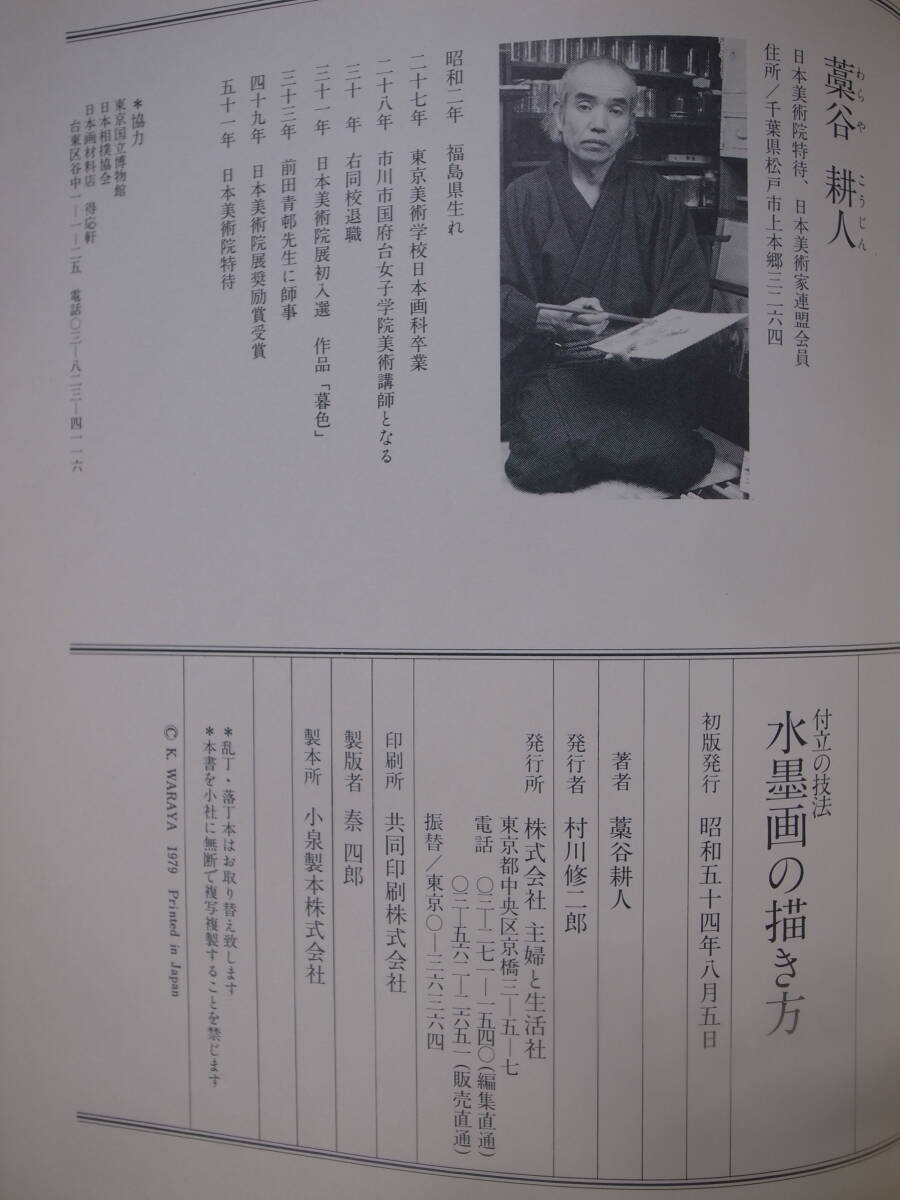 藁谷 耕人
わらや こうじん
日本美術院特待、日本美術家連盟会員
住所／千葉県松戸市上本郷三二六四
昭和二年 福島県生れ
二十七年 東京美術学校日本画科卒業
二十八年 市川市国府台女子学院美術講師となる
三十年 右同校退職
三十一年 日本美術院展初入選 作品「暮色」
三十三年 前田青邨先生に師事
四十九年 日本美術院展奨励賞受賞
五十一年 日本美術院特待
＊協力
東京国立博物館
日本相撲協会
日本画材料店 得応軒
台東区谷中一―一―二五 電話〇三―八二三―四一一六
付立の技法
水墨画の描き方
初版発行 昭和五十四年八月五日
著者 藁谷耕人
発行者 村川修二郎
発行所 株式会社 主婦と生活社
東京都中央区京橋三―五―七
電話 〇三―二七一―一五四〇(編集直通)
〇三―五六二―二六五一(販売直通)
振替／東京〇―三六三六四
印刷所 共同印刷株式会社
製版者 泰 四郎
製本所 小泉製本株式会社
＊乱丁・落丁本はお取り替え致します
＊本書を小社に無断で複写複製することを禁じます
© K. WARAYA 1979 Printed in Japan